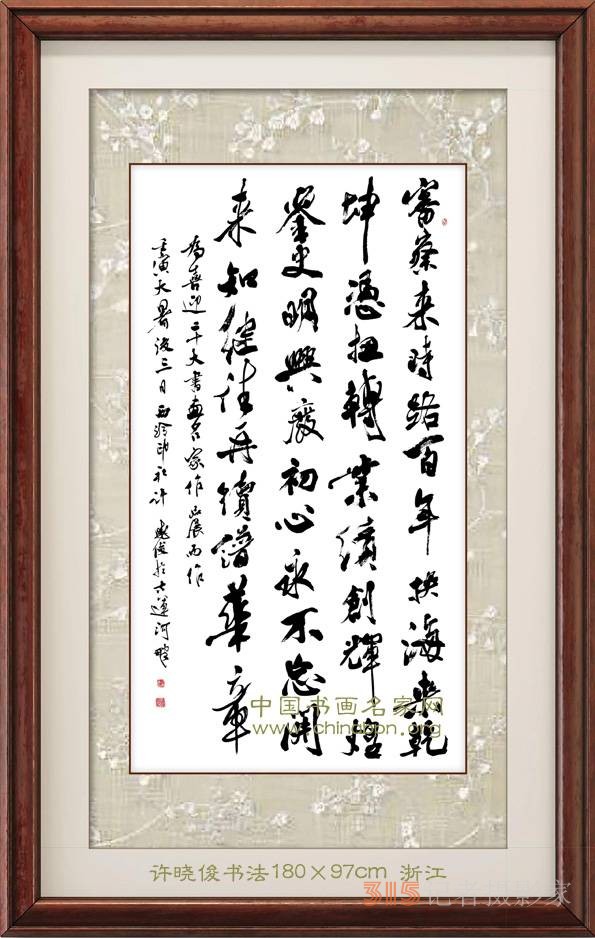 審察来時路百年換海桑乾
坤憑扭轉業績創輝煌
鑒史明興廢初心永不忘開
来知繼往再續譜華章
為喜迎二十大書画名家作品展而作
壬寅大暑後三日西泠印社許曉俊於古運河畔
中国书画名家网
www.chinabpn.org
许晓俊书法180×97cm 浙江
315记者摄影家